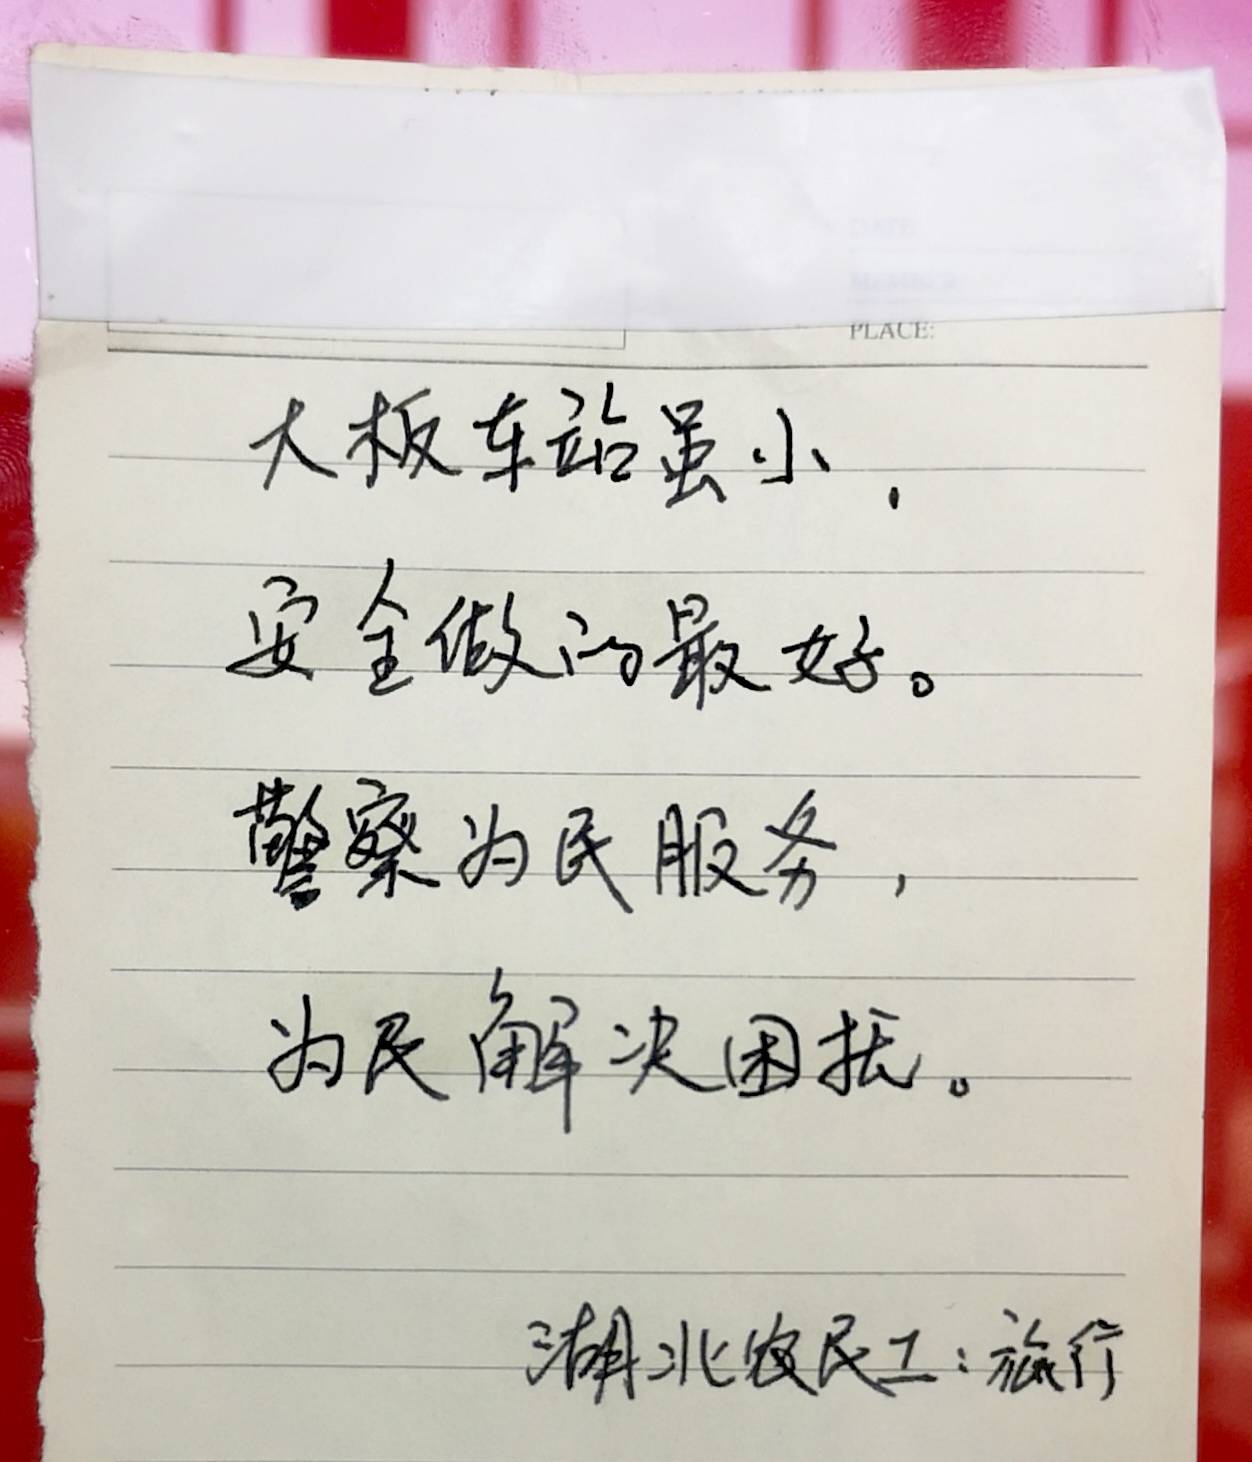 PLACE:
大板车站虽小,
安全做的最好。
警察为民服务,
为民解决困扰。
湖北农民工:旅行